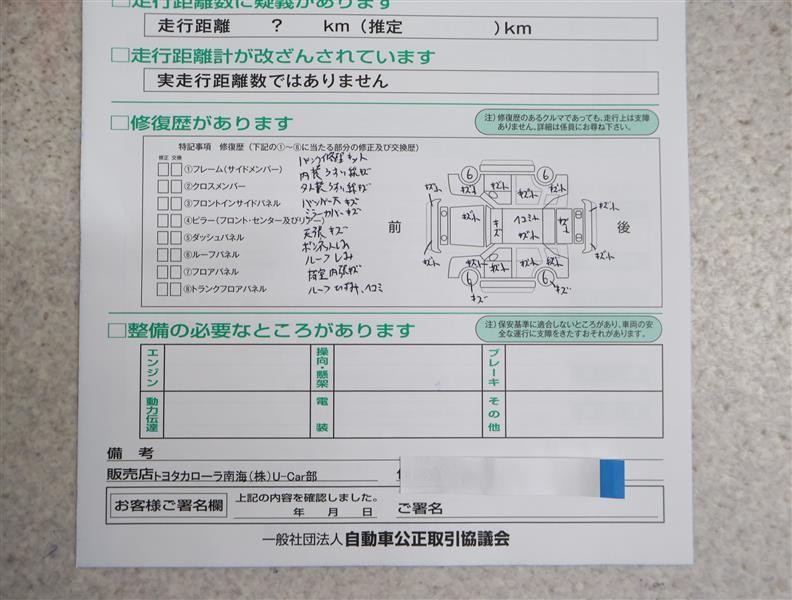 □走行距離数に疑義があります
走行距離 ? km (推定 )km
□走行距離計が改ざんされています
実走行距離数ではありません
□修復歴があります
注) 修復歴のあるクルマであっても、走行上は支障ありません。詳細は係員にお尋ね下さい。
特記事項 修復歴 (下記の①～⑧に当たる部分の修正及び交換歴)
修正 交換
□□①フレーム(サイドメンバー)
□□②クロスメンバー
□□③フロントインサイドパネル
□□④ピラー(フロント・センター及びリアー)
□□⑤ダッシュパネル
□□⑥ルーフパネル
□□⑦フロアパネル
□□⑧トランクフロアパネル
パンク修理キット
内装うすい線キズ
外装うすい線キズ
バンパー大キズ
ミラーカバーキズ
天張キズ
ボンネットしみ
ルーフしみ
荷室内張キズ
前
後
6
6
6
6
キズ
ヘコミ
□整備の必要なところがあります
注) 保安基準に適合しないところがあり、車両の安全な運行に支障をきたすおそれがあります。
エンジン
操向・懸架
ブレーキ
動力伝達
電装
その他
備考
販売店トヨタカローラ南海(株)U-Car部
お客様ご署名欄
上記の内容を確認しました。
年 月 日
ご署名
一般社団法人 自動車公正取引協議会